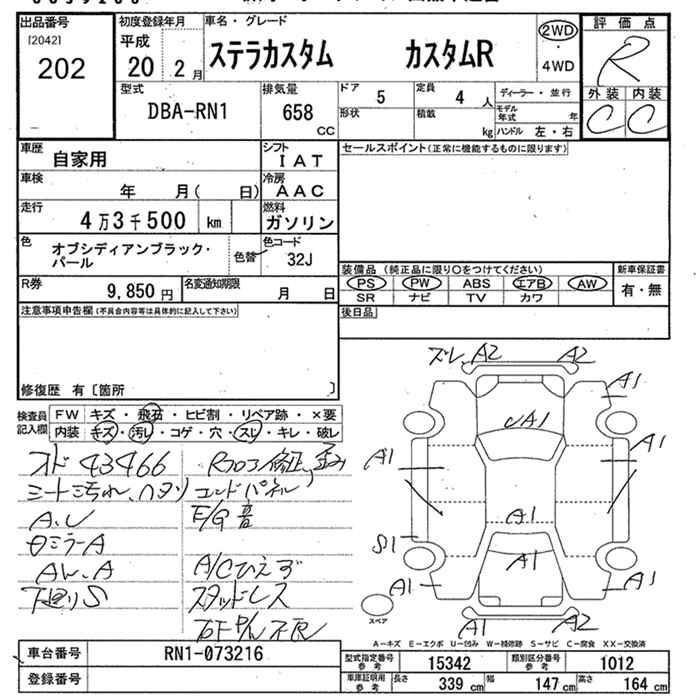 出品番号
[2042]
202
初度登録年月
平成
20 2月
車名・グレード
ステラカスタム カスタムR
2WD
・
4WD
評価点
R
外装 内装
C C
型式
DBA-RN1
排気量
658
CC
ドア
5
定員
4 人
形状
積載
kg
ディーラー・並行
モデル年式 年
ハンドル 左・右
車歴
自家用
シフト
IAT
車検
年 月( 日)
冷房
AAC
走行
4万3千500 km
燃料
ガソリン
色
オブシディアンブラック・
パール
色替
色コード
32J
R券
9,850円
名変通知期限
月 日
セールスポイント(正常に機能するものに限ります)
装備品(純正品に限り○をつけてください)
PS PW ABS エアB AW
SR ナビ TV カワ
新車保証書
有・無
後日品
注意事項申告欄(不具合内容等は具体的に記入して下さい)
修復歴 有〔箇所 〕
検査員
記入欄
FW キズ・飛石・ヒビ割・リペア跡・×要
内装 キズ・汚レ・コゲ・穴・スレ・キレ・破レ
オド 43466
シート汚れ、ヘタリ
A.U
ロミラーA
AW.A
下廻りS
Rフロア修正、歪み
エンドパネル
E/G音
A/Cひえず
スタッドレス
ズレ、A2
A2
A1
A1
A1
A1
A1
A1
S1
A1
A1
A1
A2
スペア
A−キズ E−エクボ U−凹み W−補修跡 S−サビ C−腐食 XX−交換済
車台番号
RN1-073216
登録番号
型式指定番号
参考
15342
類別区分番号
参考
1012
車庫証明用
参考
長さ
339 cm
幅
147 cm
高さ
164 cm